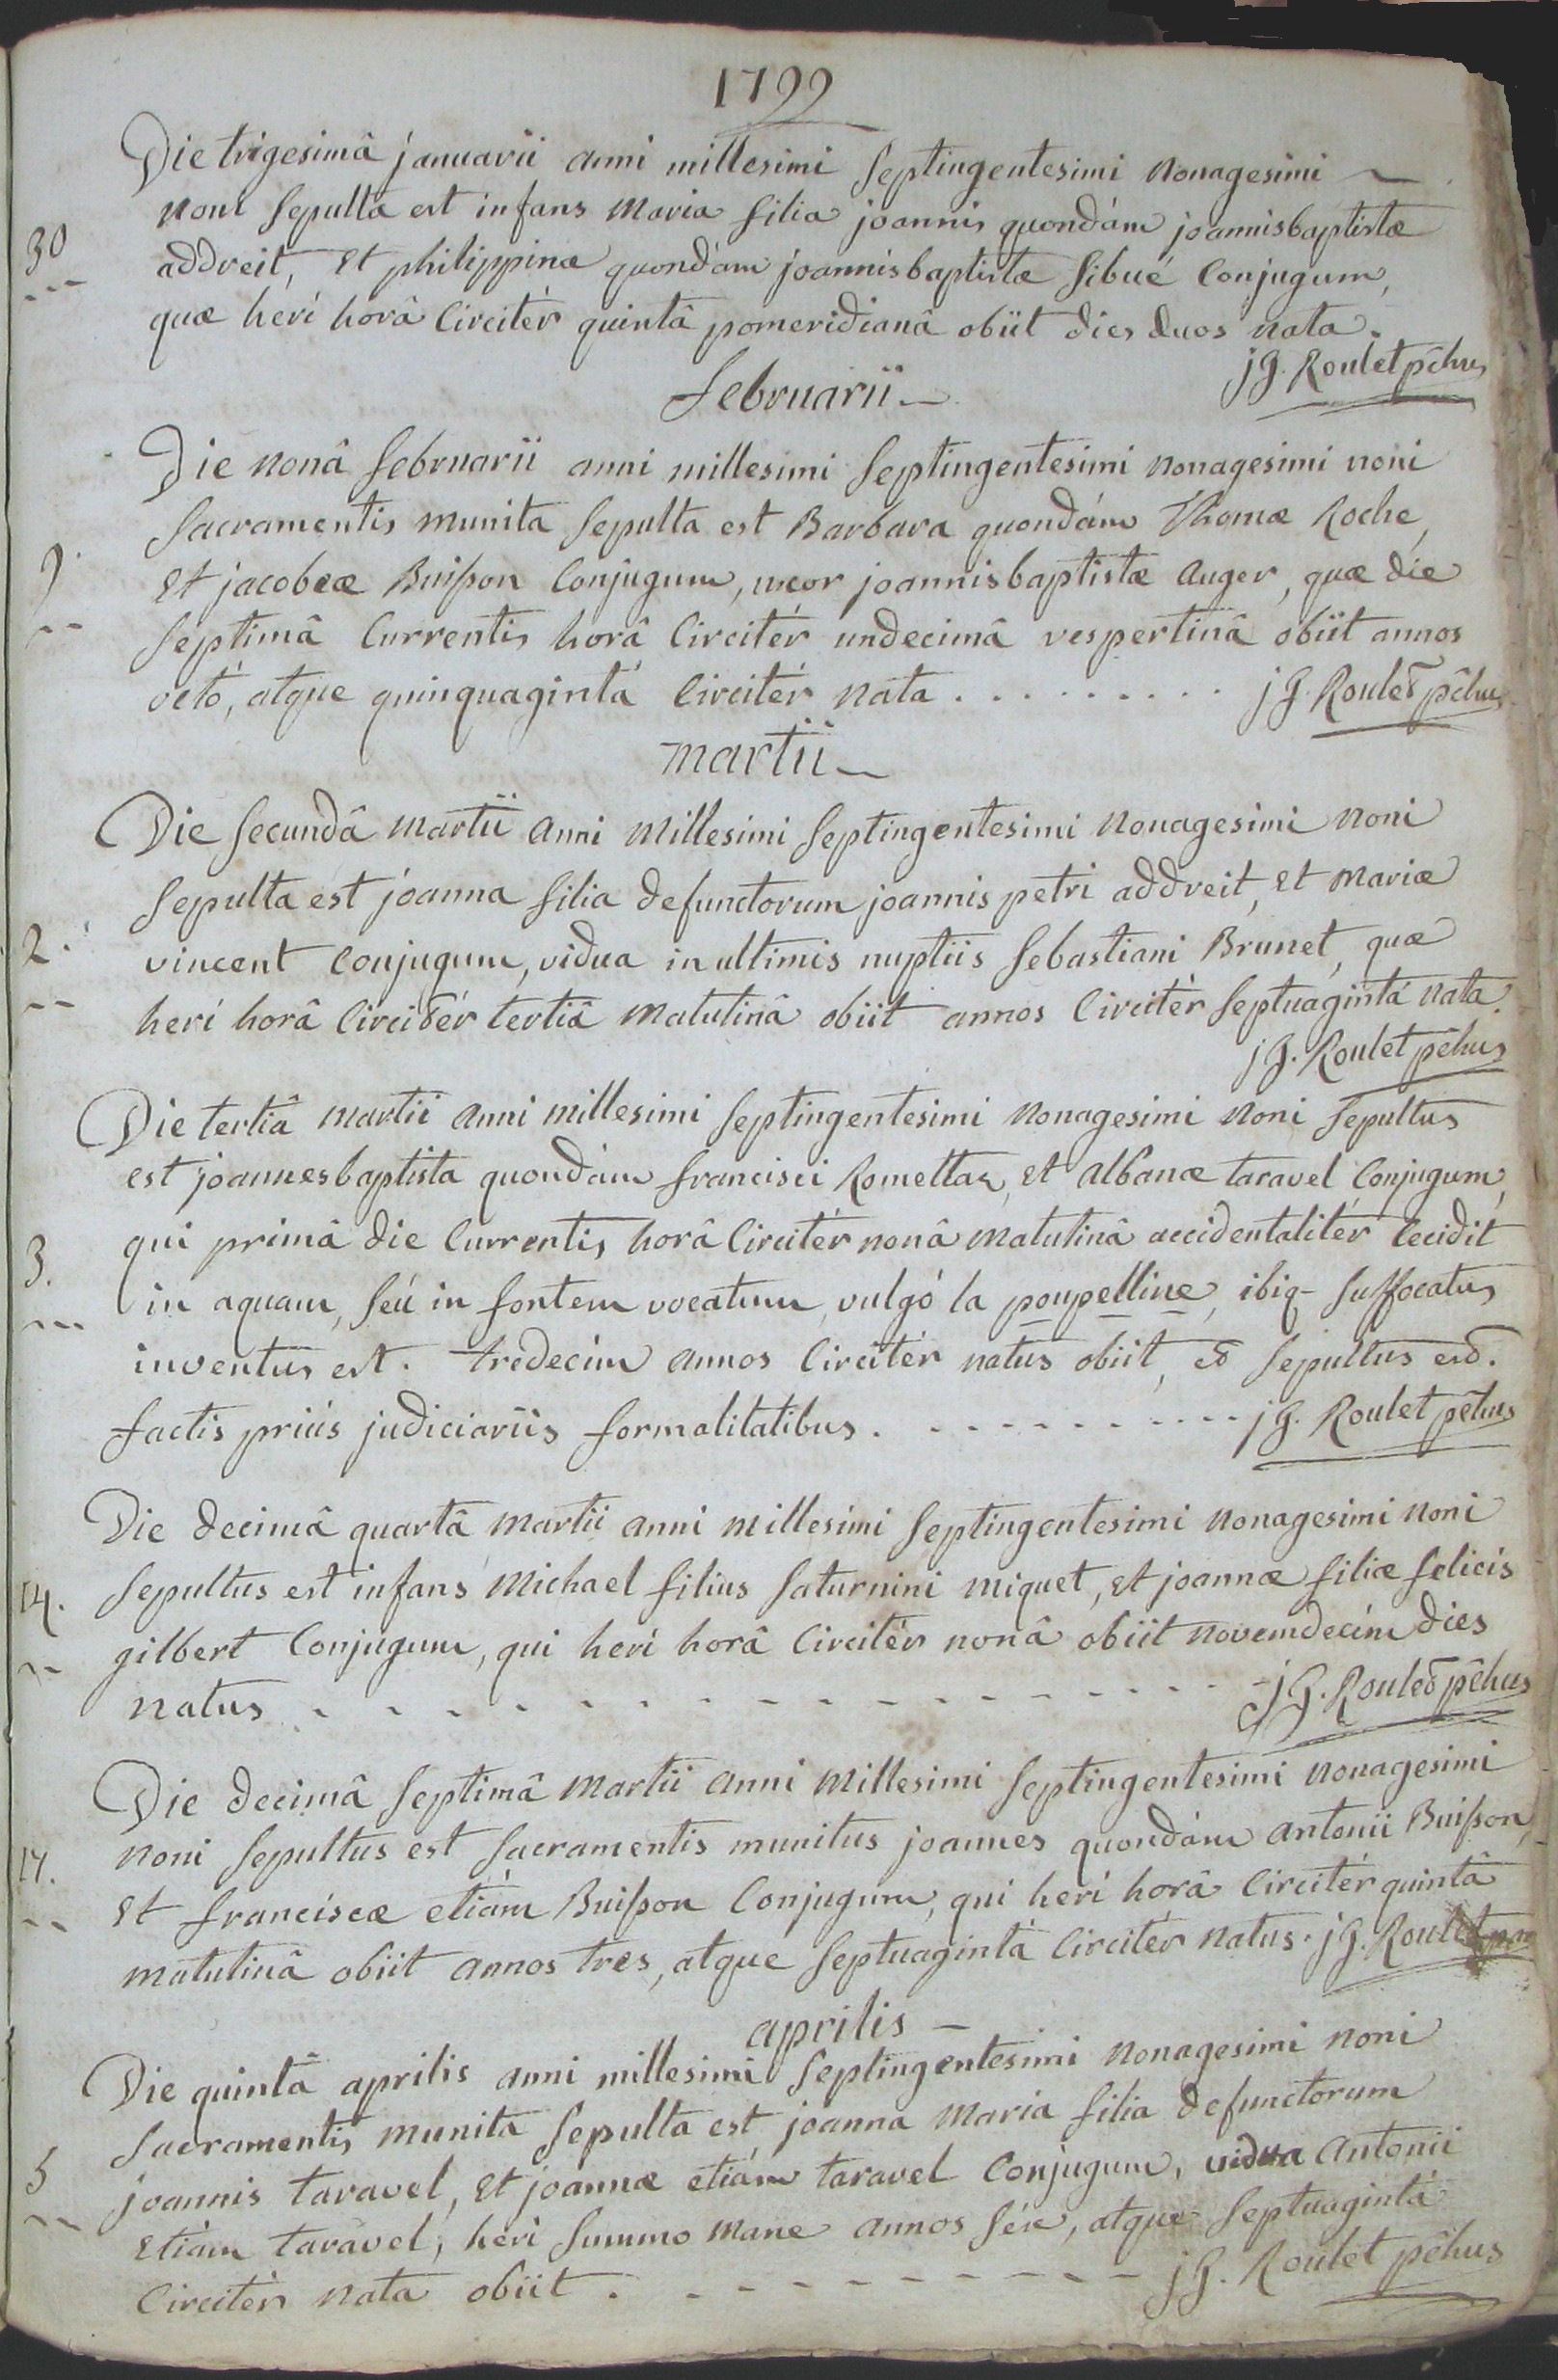 1799
Die trigesimâ januarii anni millesimi septingentesimi nonagesimi
30
noni sepulta est infans maria filia joannis quondám joannisbaptistæ
addreit, et philippinæ quondám joannisbaptistæ sibué conjugum,
quæ herí horâ circitér quintâ pomeridianâ obiit dies duos nata.
jg. Roulet pĉhus
februarii
Die nonâ februarii anni millesimi septingentesimi nonagesimi noni
sacramentis munita sepulta est Barbara quondám Thomæ Roche,
9
et jacobeæ Buisson conjugum, uxor joannisbaptistæ auger, quæ die
septimâ currentis horâ circitér undecimâ vespertinâ obiit annos
octó, atque quinquagintá circitér nata . . . . . . . . . jg. Roulet pĉhus
martii
Die secundâ martii anni millesimi septingentesimi nonagesimi noni
sepulta est joanna filia defunctorum joannis petri addreit, et mariæ
2.
vincent conjugum, vidua in ultimis nuptiis sebastiani Brunet, quæ
herí horâ circitér tertiâ matutinâ obiit annos circitér septuagintá nata.
jg. Roulet pĉhus
Die tertiâ martii anni millesimi septingentesimi nonagesimi noni sepultus
est joannesbaptista quondám francisci Romettaz, et albanæ taravel conjugum,
3.
qui primâ die currentis horâ circitér nonâ matutinâ accidentalitér cecidit
in aquam, séu in fontem vocatum, vulgó la poupelline, ibiq- suffocatus
inventus est. tredecím annos circitér natus obiit, et sepultus est.
factis priús judiciariis formalitatibus. - - - - - - - - - - jg. Roulet pĉhus
Die decimâ quartâ martii anni millesimi septingentesimi nonagesimi noni
14.
sepultus est infans michael filius saturnini miquet, et joannæ filiæ felicis
gilbert conjugum, qui herí horâ circitér nonâ obiit novemdecím dies
natus - - - - - - - - - - - - - - - - jg. Roulet pĉhus
Die decimâ septimâ martii anni millesimi septingentesimi nonagesimi
17.
noni sepultus est sacramentis munitus joannes quondám antonii Buisson,
et franciscæ etiám Buisson conjugum, qui herí horâ circitér quintâ
matutinâ obiit annos tres, atque septuagintá circitér natus. jg. Roulet
aprilis
Die quintâ aprilis anni millesimi septingentesimi nonagesimi noni
sacramentis munita sepulta est joanna maria filia defunctorum
5
joannis taravel, et joannæ etiám taravel conjugum, vidua antonii
etiám taravel, herí summo mane annos séx, atque septuagintá
circitér nata obiit. - - - - - - - - - - jg. Roulet pĉhus